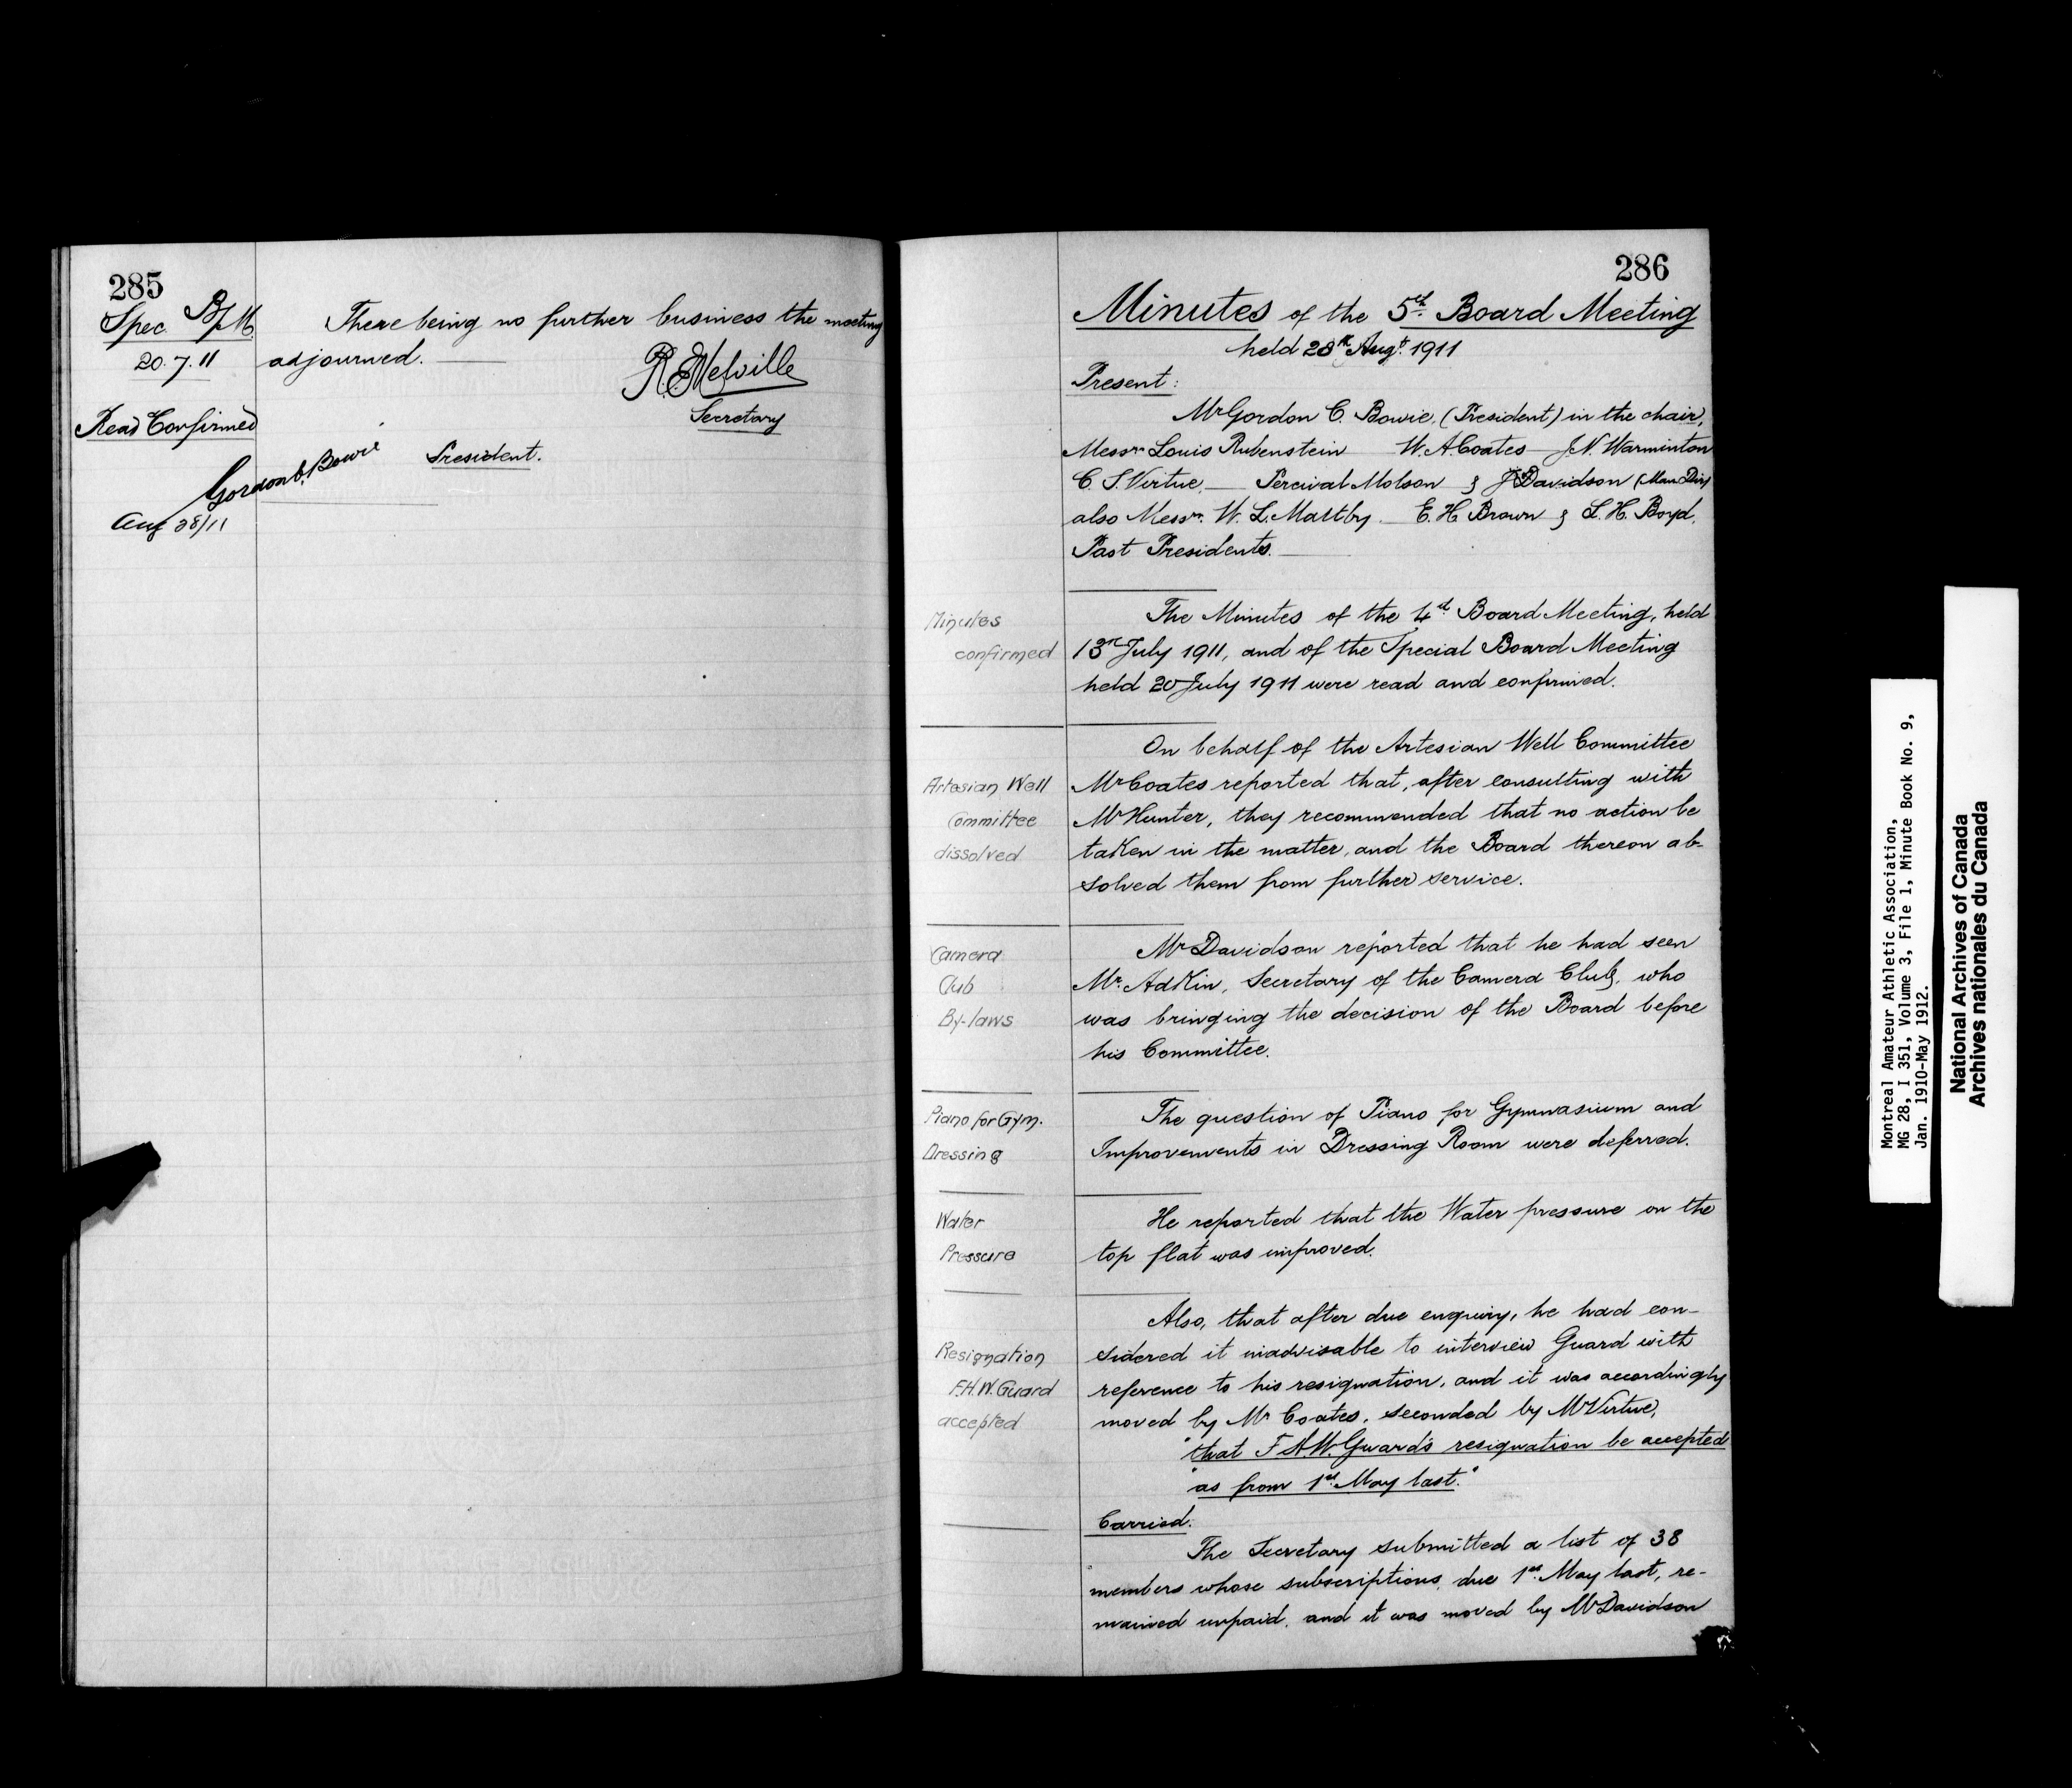 285
Spec. B/M.
20.7.11
There being no further business the meeting
adjourned.
R. S. Melville
Secretary
Read Confirmed
Gordon C. Bowie President.
Aug 28/11
286
Minutes of the 5th Board Meeting
held 28th Augt. 1911
Present:
Mr Gordon C. Bowie, (President) in the chair,
Messrs Louis Rubenstein W. A. Coates J. N. Warminton
C. S. Virtue, Percival Molson & J Davidson (Man Dir)
also Messrs. W. L. Maltby. E. H Brown & L. H. Boyd.
Past Presidents.
Minutes
confirmed
The Minutes of the 4th Board Meeting, held
13th July 1911, and of the Special Board Meeting
held 20 July 1911 were read and confirmed.
Artesian Well
Committee
dissolved
On behalf of the Artesian Well Committee
Mr Coates reported that, after consulting with
Mr Hunter, they recommended that no action be
taken in the matter, and the Board thereon ab-
solved them from further service.
Camera
Club
By-laws
Mr Davidson reported that he had seen
Mr. Adkin, Secretary of the Camera Club, who
was bringing the decision of the Board before
his Committee.
Piano for Gym.
Dressing
The question of Piano for Gymnasium and
Improvements in Dressing Room were deferred.
Water
Pressure
He reported that the Water pressure on the
top flat was improved.
Resignation
F.H.W. Guard
accepted
Also, that after due enquiry, he had con-
sidered it inadvisable to interview Guard with
reference to his resignation, and it was accordingly
moved by Mr Coates, seconded by Mr Virtue,
"that F.H.W. Guard's resignation be accepted
"as from 1st May last."
Carried.
The Secretary submitted a list of 38
members whose subscriptions, due 1st May last, re-
mained unpaid, and it was moved by Mr Davidson
Montreal Amateur Athletic Association,
MG 28, I 351, Volume 3, File 1, Minute Book No. 9,
Jan. 1910-May 1912.
National Archives of Canada
Archives nationales du Canada